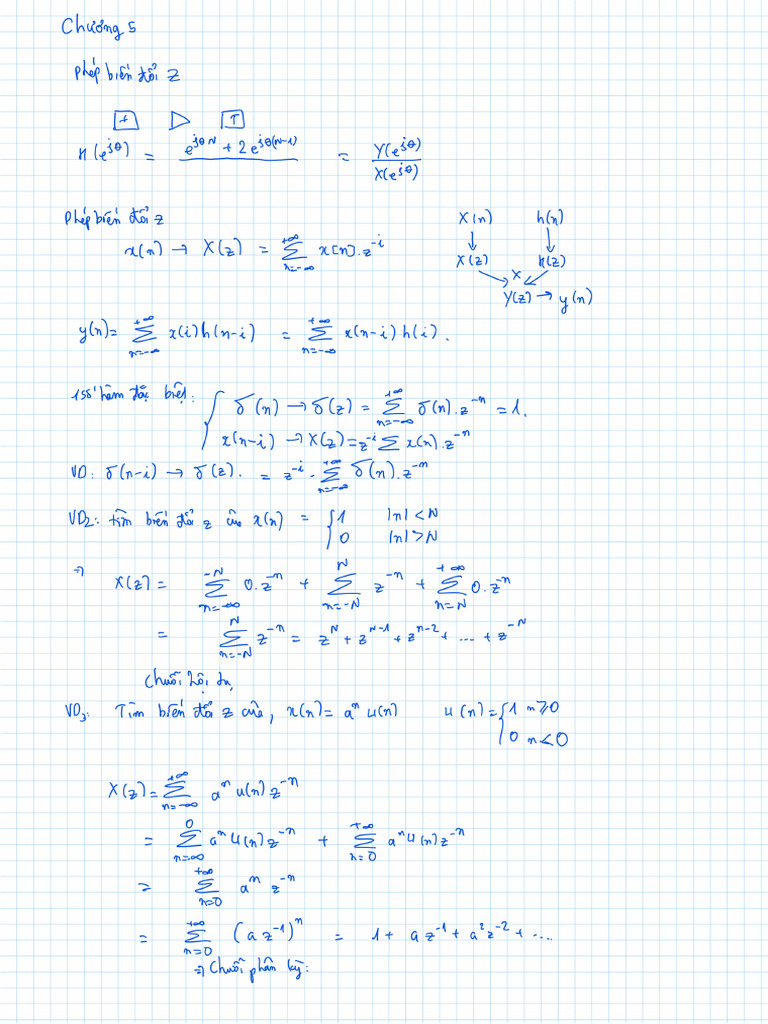 Chương 5
Phép biến đổi Z
+ ▷ T
H(e^{jθ}) = (e^{jθN} + 2e^{jθ(N-1)}) / = Y(e^{jθ}) / X(e^{jθ})
Phép biến đổi z
x(n) → X(z) = ∑_{n=-∞}^{+∞} x[n].z^{-i}
X(n) h(n)
↓ ↓
X(z) H(z)
X
Y(z) → y(n)
y(n) = ∑_{n=-∞}^{+∞} x(i)h(n-i) = ∑_{n=-∞}^{+∞} x(n-i)h(i).
1 số hàm đặc biệt: { δ(n) → δ(z) = ∑_{n=-∞}^{+∞} δ(n).z^{-n} = 1.
x(n-i) → X(z) = z^{-i} ∑ x(n).z^{-n}
VD: δ(n-i) → δ(z). = z^{-i}. ∑_{n=-∞}^{+∞} δ(n).z^{-n}
VD2: tìm biến đổi z của x(n) = { 1 |n| < N
0 |n| > N
=> X(z) = ∑_{n=-∞}^{-N} 0.z^{-n} + ∑_{n=-N}^{N} z^{-n} + ∑_{n=N}^{+∞} 0.z^{-n}
= ∑_{n=-N}^{N} z^{-n} = z^N + z^{N-1} + z^{n-2} + ... + z^{-N}
Chuỗi hội tụ
VD3: Tìm biến đổi z của, x(n) = a^n u(n) u(n) = { 1 n ≥ 0
0 n < 0
X(z) = ∑_{n=-∞}^{+∞} a^n u(n) z^{-n}
= ∑_{n=∞}^{0} a^n u(n) z^{-n} + ∑_{n=0}^{+∞} a^n u(n) z^{-n}
= ∑_{n=0}^{+∞} a^n z^{-n}
= ∑_{n=0}^{+∞} (a z^{-1})^n = 1 + a z^{-1} + a^2 z^{-2} + ....
=> Chuỗi phân kỳ: